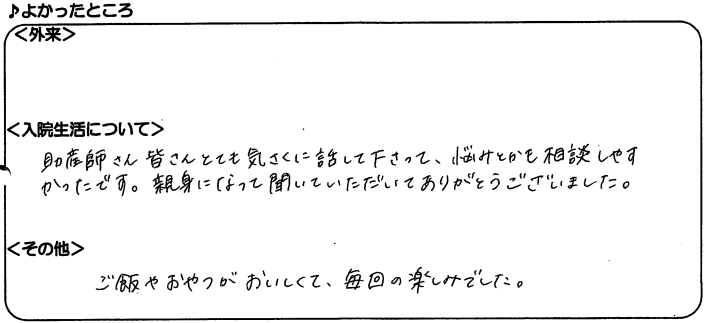 ♪よかったところ
＜外来＞
＜入院生活について＞
助産師さん皆さんとても気さくに話して下さって、悩みとかも相談しやす
かったです。親身になって聞いていただいてありがとうございました。
＜その他＞
ご飯やおやつがおいしくて、毎回の楽しみでした。